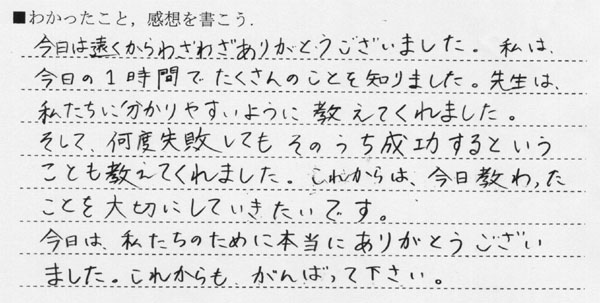 ■わかったこと，感想を書こう．
今日は遠くからわざわざありがとうございました。私は、
今日の1時間でたくさんのことを知りました。先生は、
私たちに分かりやすいように教えてくれました。
そして、何度失敗してもそのうち成功するという
ことも教えてくれました。これからは、今日教わった
ことを大切にしていきたいです。
今日は、私たちのために本当にありがとうござい
ました。これからも、がんばって下さい。